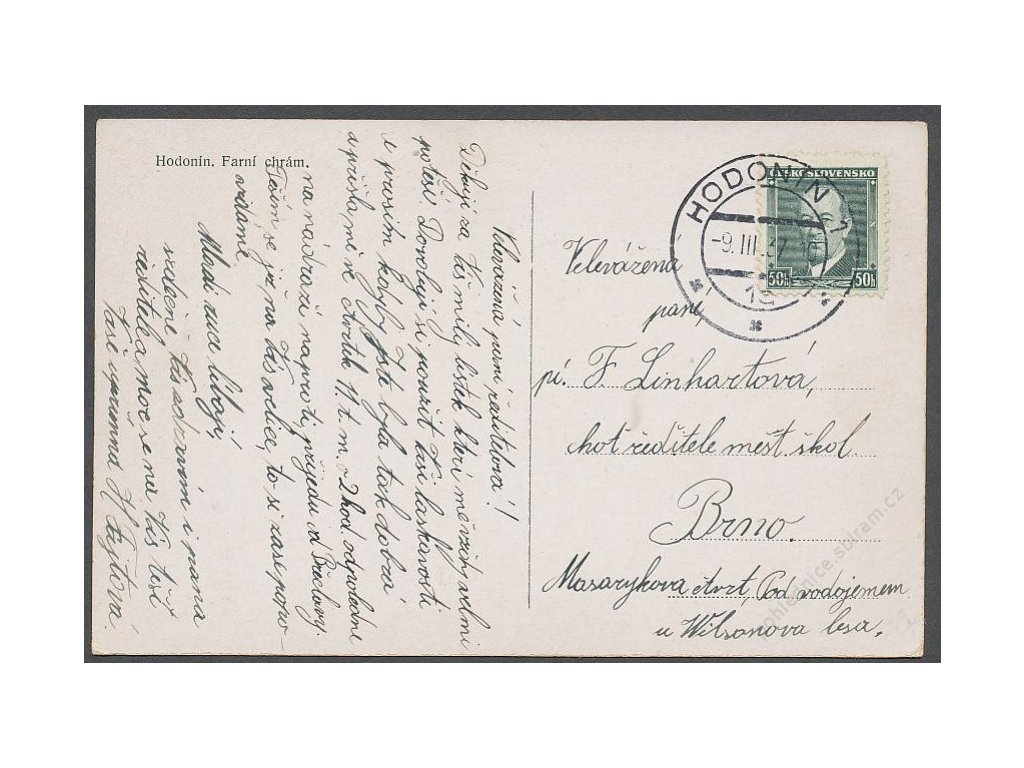 Hodonín. Farní chrám.
Velevážená paní řaditelová!
Děkuji za Váš milý lístek který mě vždy velmi
potěší. Dovoluji si použít Vaší laskavosti
a prosím kdyby jste byla tak dobrá
a přišla mi ve čtvrtek 11 t. m. o 2 hod. odpoledne
na nádraží naproti, přijedu od Břeclavy.
Těším se již na Vás velice, to si zase popo-
vídáme.
Maní ruce líbají,
srdečně Vás zdravím i pana
ředitele moc se na Vás těší
Vaše upřímná H
HODONÍN 1
-9.III.37
ČESKOSLOVENSKO
50h 50h
Velevážená
paní
pí. F. Linhartová,
choť ředitele měšt. škol
Brno.
Masarykova čtvrť, Pod vodojemem
u Wilsonova lesa.
pohlednice.sberam.cz